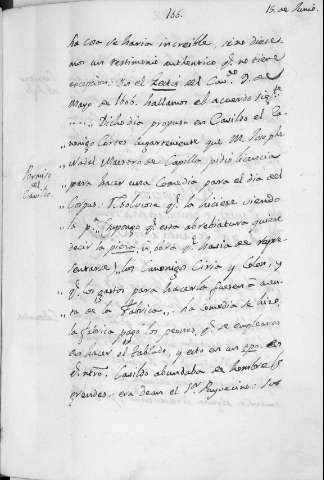 166.
15 de Junio.
ha cosa se haria increible, si no diese-
mos un testimonio authentico q.e no tiene
excepcion. En el del Cav.do 9. de
Mayo de 1606. hallamos el acuerdo sig.te
Dicho dia propuso en Cavildo el Ca-
nonigo Cortes lugarteniente que M. Jusephe
Maestro de Capilla pidió licencia
Permiso
del
Cavildo.
para hacer una Comedia para el dia del
Corpus. Resolviose q.e la hiciese viendo
la p.a (supongo q.e esta abrebiatura quiere
decir la pieza, ú obra q.e havia de repre-
sentarse) los Canonigos Ciria y Colon, y
q.e los gastos para hacerla fuesen á cuen-
ta de la Fabrica. ha comedia se hizo,
la Fabrica pagó los peones q.e se emplearon
en hacer el tablado, y esto en un tpo. en
q.e nro. Cavildo abundaba de hombres
grandes: era Dean el S.or